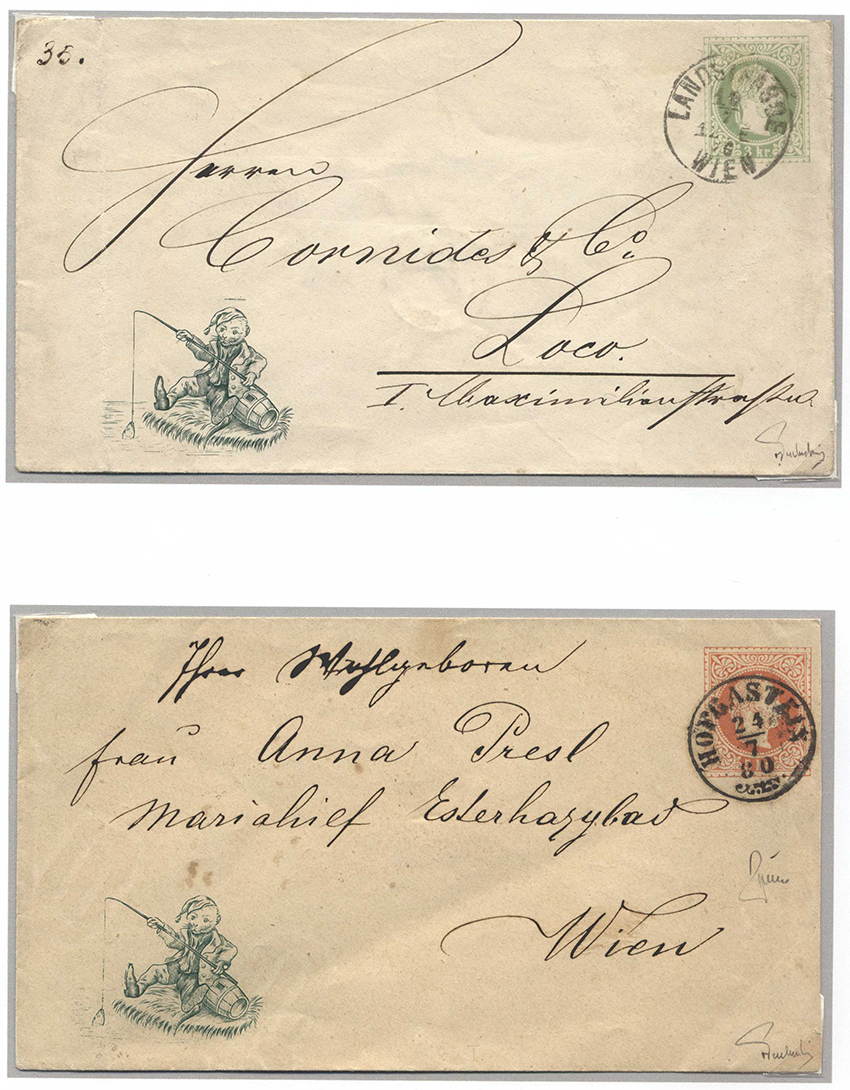 35.
LANDSTRASSE
WIEN
3 kr.
Herren
Cornides & Co
Loco.
I. Maximilianstrasse
Ihrer Wohlgeboren
frau Anna Presl
Mariahief Esterhazybad
Wien
HOFGASTEIN
24
7
80